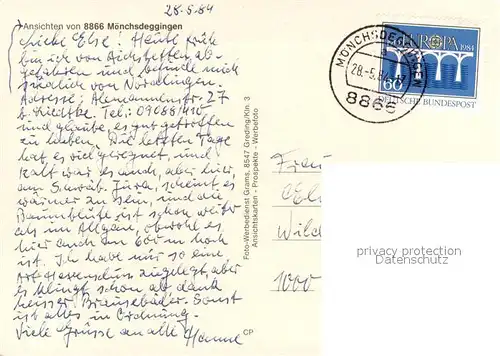 28.5.84
Ansichten von 8866 Mönchsdeggingen
Liebe Else! Heute früh
bin ich von Aichstetten ab-
gefahren und befinde mich
südlich von Nördlingen.
Adresse: Alemannenstr. 27
b. Liedtke. Tel.: 09088/410
und glaube, es gut getroffen
zu haben. Die letzten Tage
hat es viel geregnet, und
kalt war es auch, aber hier,
am Schwäb. Jura, scheint es
wärmer zu sein, und die
Baumblüte ist schon weiter
als im Allgäu, obwohl es
hier auch an 600 m hoch
ist. Ich habe mir so eine
Art Hexenschuss zugelegt, aber
es klingt schon ab dank
heisser Brausebäder. Sonst
ist alles in Ordnung.
Viele Grüsse an alle Hanne
CP
Foto-Werbedienst Grams, 8547 Greding/Kin. 3
Ansichtskarten - Prospekte - Werbefoto
MÖNCHSDEGGINGEN
28.-5.84
8866
EUROPA 1984
60
DEUTSCHE BUNDESPOST
Frau
El
Wild
1000
privacy protection
Datenschutz